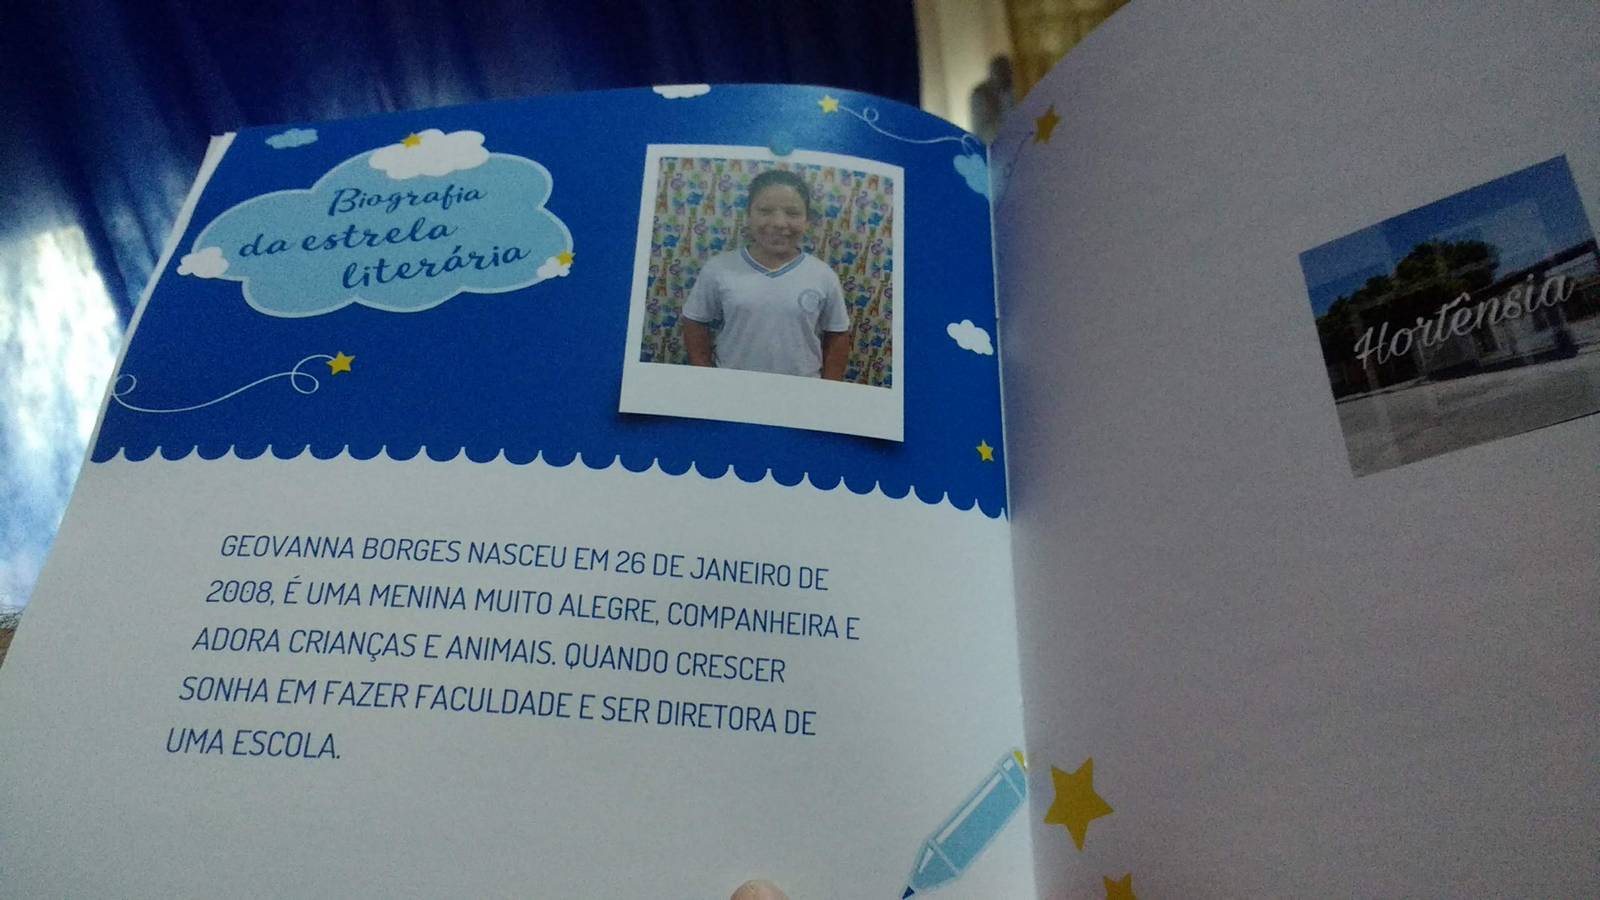 Biografia
da estrela
literária
GEOVANNA BORGES NASCEU EM 26 DE JANEIRO DE
2008, É UMA MENINA MUITO ALEGRE, COMPANHEIRA E
ADORA CRIANÇAS E ANIMAIS. QUANDO CRESCER
SONHA EM FAZER FACULDADE E SER DIRETORA DE
UMA ESCOLA.
Hortênsia